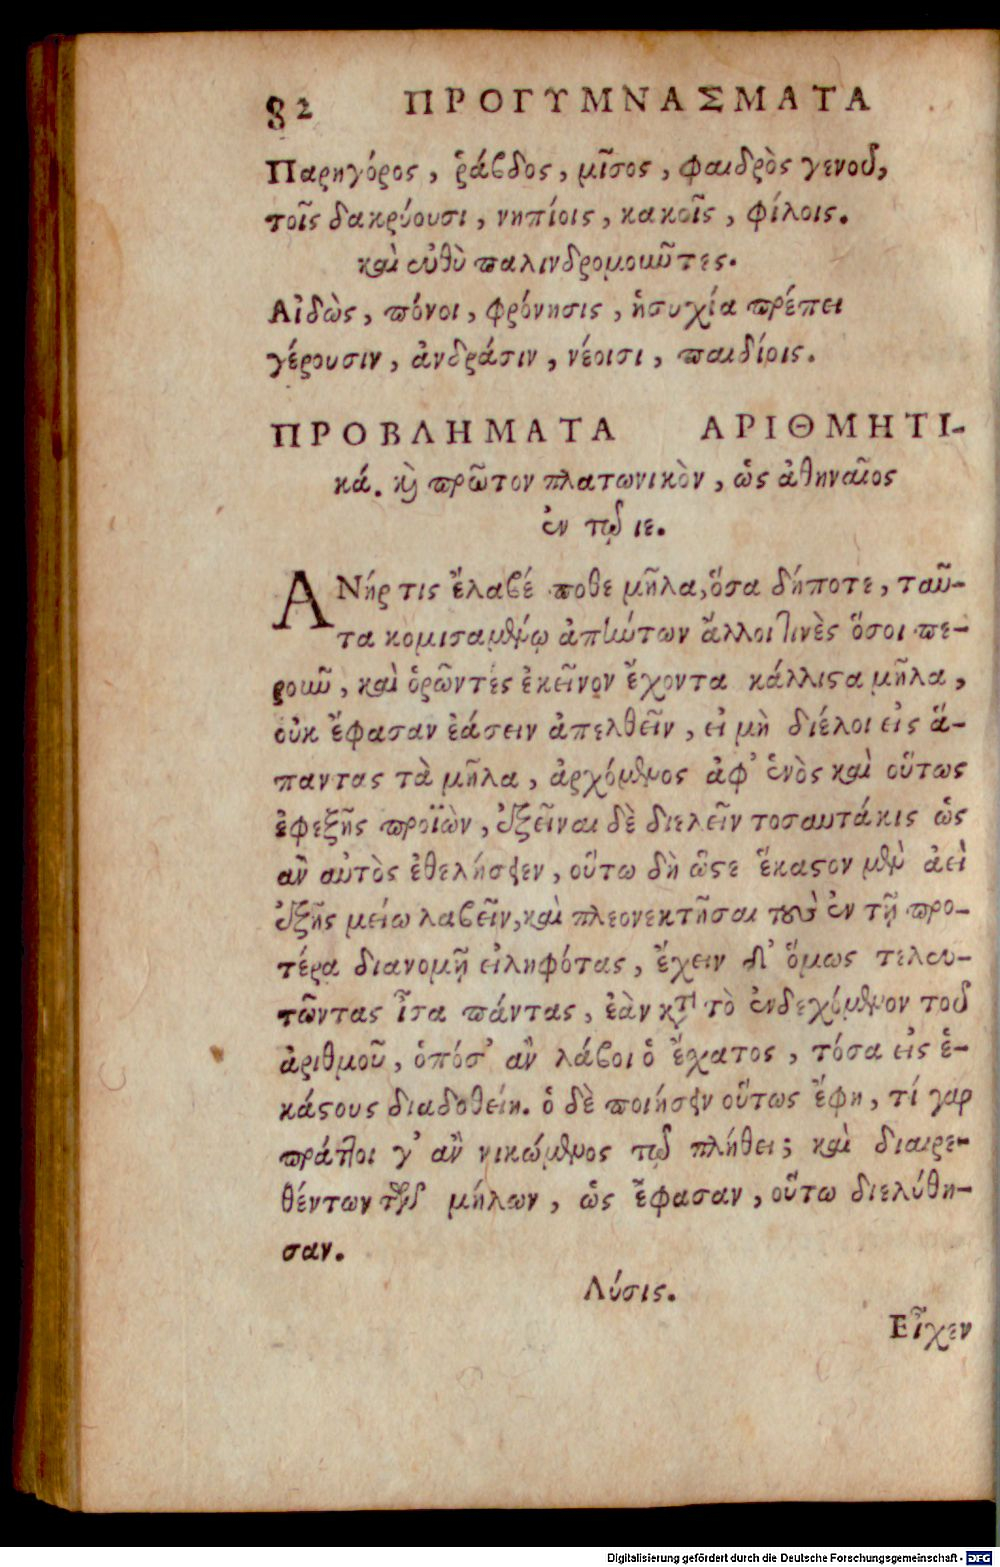 82 ΠΡΟΓΥΜΝΑΣΜΑΤΑ
Παρηγόρος, ῥάβδος, μῖσος, φαιδρὸς γενοῦ,
τοῖς δακρύουσι, νηπίοις, κακοῖς, φίλοις.
καὶ εὐθὺ παλινδρομοῦντες.
Αἰδὼς, πόνοι, φρόνησις, ἡσυχία πρέπει
γέρουσιν, ἀνδράσιν, νέοισι, παιδίοις.
ΠΡΟΒΛΗΜΑΤΑ ΑΡΙΘΜΗΤΙ-
κά. καὶ πρῶτον πλατωνικὸν, ὡς ἀθηναῖος
ἐν τῷ ιε.
ΑΝήρ τις ἔλαβέ ποθε μῆλα, ὅσα δήποτε, ταῦ-
τα κομισαμένῳ ἀπήντων ἄλλοι τινὲς ὅσοι πε-
ροῦν, καὶ ὁρῶντές ἐκεῖνον ἔχοντα κάλλιστα μῆλα,
οὐκ ἔφασαν ἐάσειν ἀπελθεῖν, εἰ μὴ διέλοι εἰς ἅ-
παντας τὰ μῆλα, ἀρχόμενος ἀφ’ ἑνὸς καὶ οὕτως
ἐφεξῆς προϊὼν, ἐξεῖναι δὲ διελεῖν τοσαυτάκις ὡς
ἂν αὐτὸς ἐθελήσειεν, οὕτω δὴ ὥστε ἕκαστον μὲν ἀεὶ
ἐξῆς μείω λαβεῖν, καὶ πλεονεκτῆσαι τοὺς ἐν τῇ προ-
τέρα διανομῇ εἰληφότας, ἔχειν δ’ ὅμως τελευ-
τῶντας ἶσα πάντας, ἐὰν κατὰ τὸ ἐνδεχόμενον τοῦ
ἀριθμοῦ, ὁπόσ’ ἂν λάβοι ὁ ἔσχατος, τόσα εἰς ἑ-
κάστους διαδοθείη. ὁ δὲ ποιήσειν οὕτως ἔφη, τί γαρ
πράττοι γ’ ἂν νικώμενος τῷ πλήθει; καὶ διαιρε-
θέντων τῶν μήλων, ὡς ἔφασαν, οὕτω διελύθη-
σαν.
Λύσις.
Εἶχεν
Digitalisierung gefördert durch die Deutsche Forschungsgemeinschaft - DFG